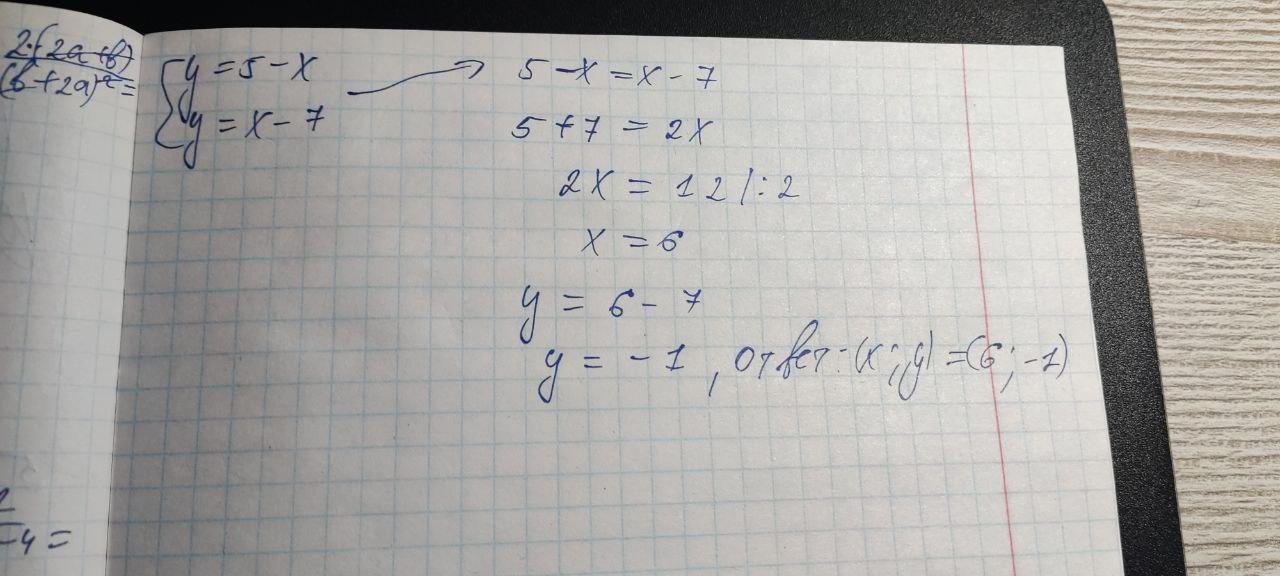 2·(2a+b)
(b+2a)²=
y = 5 - x
y = x - 7
5 - x = x - 7
5 + 7 = 2x
2x = 12 /: 2
x = 6
y = 6 - 7
y = -1, ответ: (x; y) = (6; -1)
-4 =